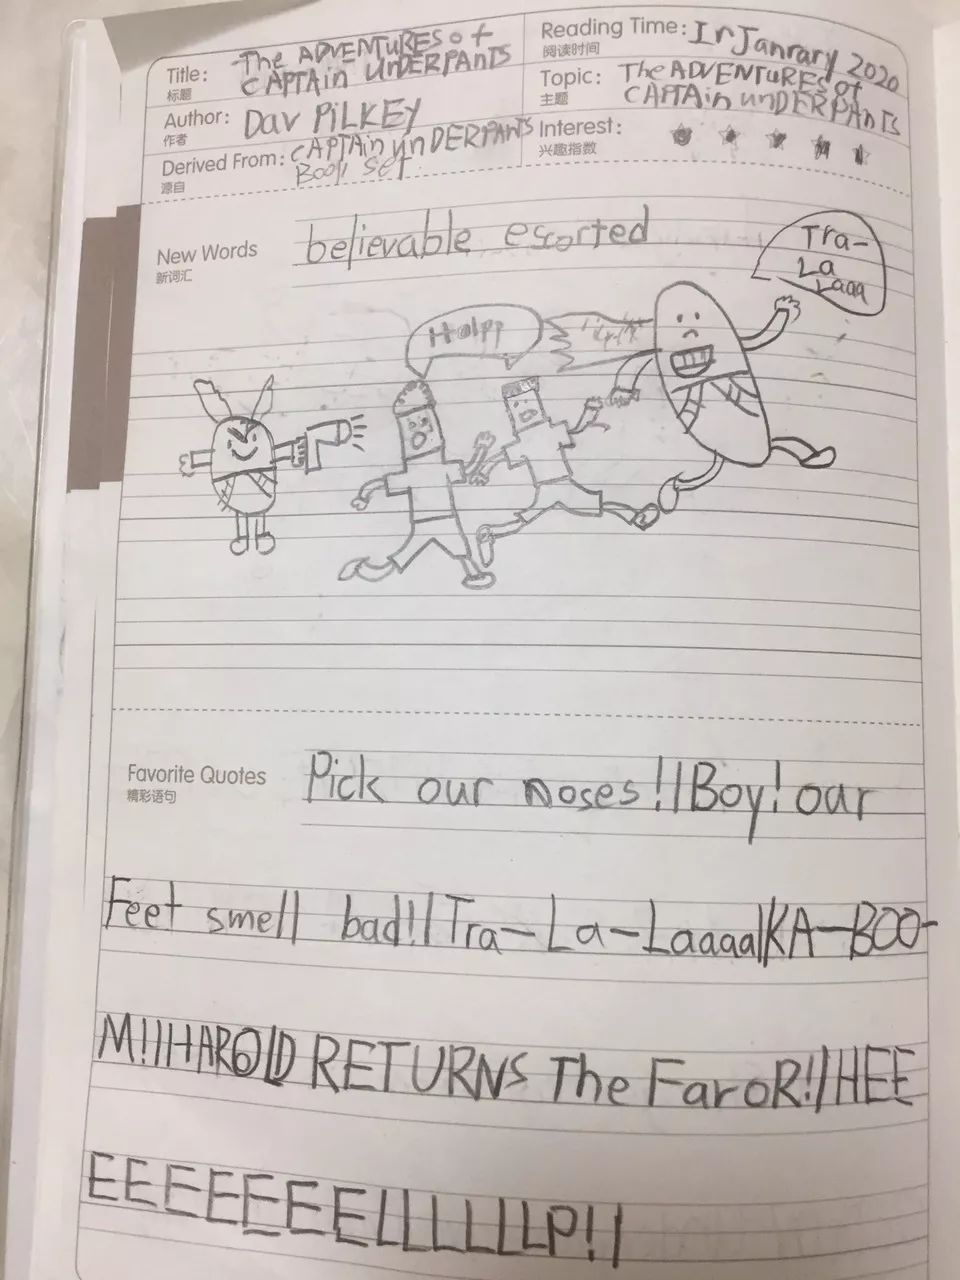 Title: The ADVENTURES of
标题 CAPTAin UnDERPAnTS
Reading Time: In Janrary 2020
阅读时间
Author: Dav PiLKEY
作者
Topic: The ADVENTURES of
主题 CAPTAin unDERPAnTS
Derived From: CAPTAin unDERPAnTS
源自 Book Set
Interest:
兴趣指数
New Words believable escorted
新词汇
Tra-
La
Laaa
Halpp
Favorite Quotes Pick our noses!/Boy! our
精彩语句
Feet smell bad!/Tra-La-Laaaa/KA-BOO-
M!/HAROLD RETURNS The FavoR!/HEE
EEEEEEELLLLLLP!/